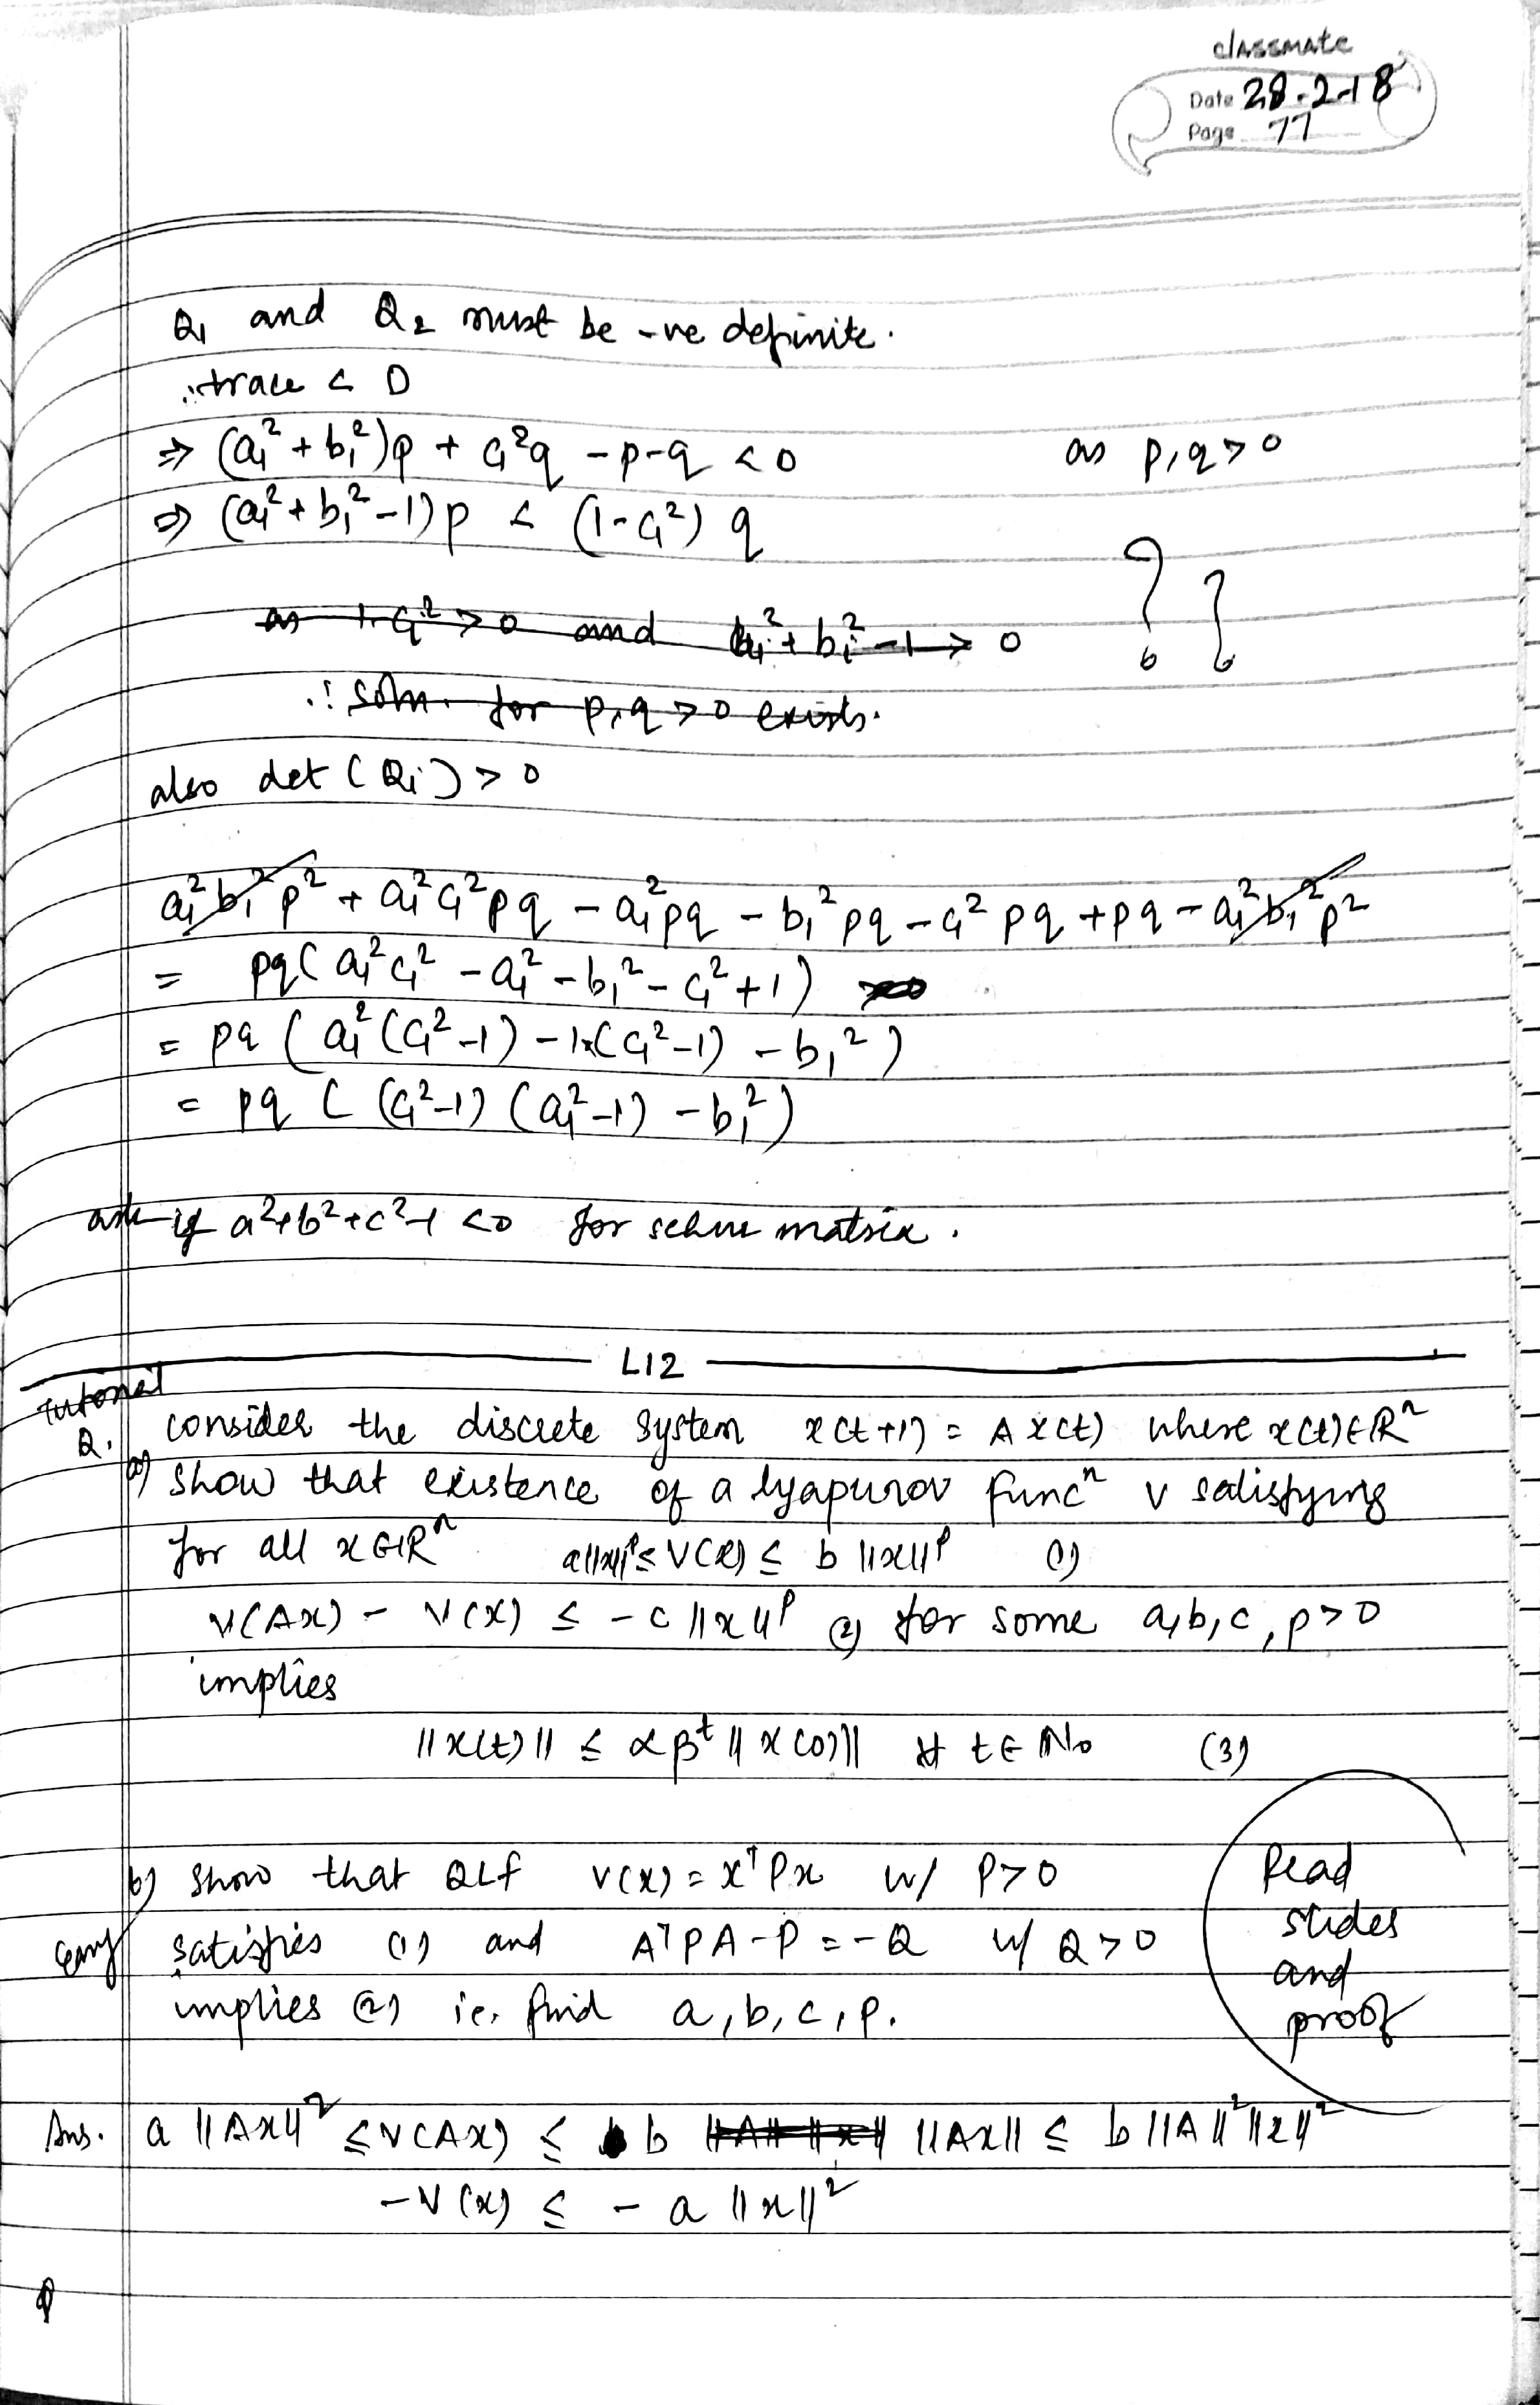 classmate
Date 28-2-18
Page 77
Q₁ and Q₂ must be -ve definite.
∴ trace < 0
⇒ (a₁² + b₁²)p + c₁²q - p - q < 0 as p, q > 0
⇒ (a₁² + b₁² - 1)p < (1 - c₁²) q
as 1-c₁² > 0 and a₁² + b₁² - 1 > 0 ? ?
∴ soln. for p, q > 0 exists.
also det (Qi) > 0
a₁²b₁²p² + a₁²c₁²pq - a₁²pq - b₁²pq - c₁²pq + pq - a₁²b₁²p²
= pq( a₁²c₁² - a₁² - b₁² - c₁² + 1)
= pq ( a₁²(c₁²-1) - 1×(c₁²-1) - b₁²)
= pq ( (c₁²-1) (a₁²-1) - b₁²)
ask if a²+b²+c²-1 < 0 for schur matrix.
L12
Tutorial
Q. consider the discrete system x(t+1) = A x(t) where x(t)∈ℝⁿ
a) Show that existence of a lyapunov funcⁿ v satisfying
for all x∈ℝⁿ a||x||ᵖ ≤ V(x) ≤ b ||x||ᵖ (1)
V(Ax) - V(x) ≤ -c ||x||ᵖ (2) for some a,b,c,p>0
implies
||x(t)|| ≤ αβᵗ || x(0)|| ∀ t ∈ ℕ₀ (3)
b) show that QLF v(x) = xᵀPx w/ P>0
satisfies (1) and AᵀPA - P = -Q w/ Q>0
implies (2) ie. find a, b, c, p.
Read
slides
and
proof
Ans. a ||Ax||² ≤ V(Ax) ≤ b ||A|| ||x|| ||Ax|| ≤ b ||A||²||x||²
-V(x) ≤ - a ||x||²